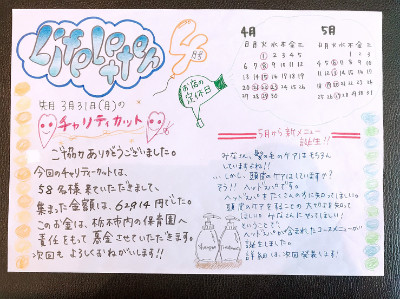 Life Letter
4月 5月
日月火水木金土 日月火水木金土
1 2 3 4 5 1 2 3
6 7 8 9 10 11 12 4 5 6 7 8 9 10
13 14 15 16 17 18 19 11 12 13 14 15 16 17
20 21 22 23 24 25 26 18 19 20 21 22 23 24
27 28 29 30 25 26 27 28 29 30 31
お店の定休日
先日 3月31日(月)の
チャリティカット
ご協力ありがとうございました。
今回のチャリティカットは、
58名様来ていただきまして、
集まった金額は、62914円でした。
このお金は、栃木市内の保育園へ
責任をもって募金させていただきます。
次回もよろしくおねがいします!!
5月から新メニュー
誕生!!
みなさん、髪の毛のケアはもちろん
していますよね!!
…しかし、頭皮のケアはしていますか?
そう!! ヘッドスパです。
ヘッドスパをたくさんの方に知ってほしい。
頭皮のケアをすることの大切さを知って
ほしい。みなさんにやってほしい!
ということで、
ヘッドスパが含まれたコースメニューが
誕生しました。
詳細は、次回発表します!